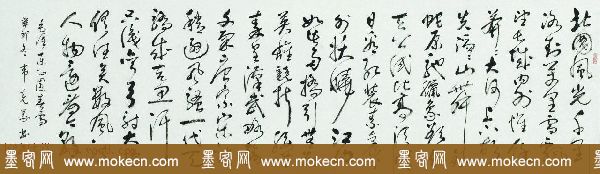 北國風光千里
冰封万里雪飘
望长城内外惟余
莽莽大河上下
失滔滔山舞银
蛇原驰蜡象欲与
天公试比高须
晴日看红装素裹
分外妖娆江山
如此多娇引无数
英雄竞折腰惜
秦皇漢武略输
文采唐宗宋祖
稍逊风骚一代天
骄成吉思汗
只识弯弓射大雕
俱往矣数风流
人物还看今朝
毛泽东沁园春雪
墨客网 墨客网 墨客网 墨客网
www.mokecn.com www.mokecn.com www.mokecn.com